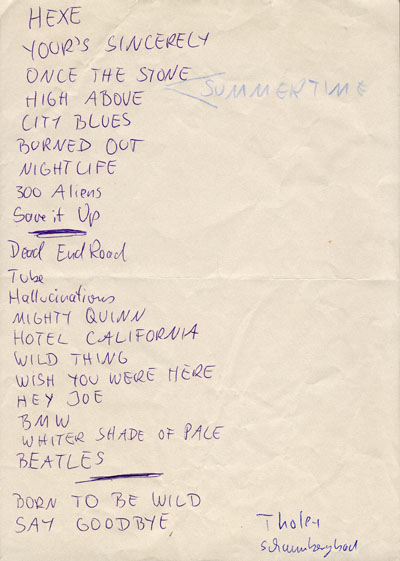 HEXE
YOUR'S SINCERELY
ONCE THE STONE
SUMMERTIME
HIGH ABOVE
CITY BLUES
BURNED OUT
NIGHTLIFE
300 Aliens
Save it Up
Dead End Road
Tube
Hallucinations
MIGHTY QUINN
HOTEL CALIFORNIA
WILD THING
WISH YOU WERE HERE
HEY JOE
BMW
WHITER SHADE OF PALE
BEATLES
BORN TO BE WILD
SAY GOODBYE
Tholey